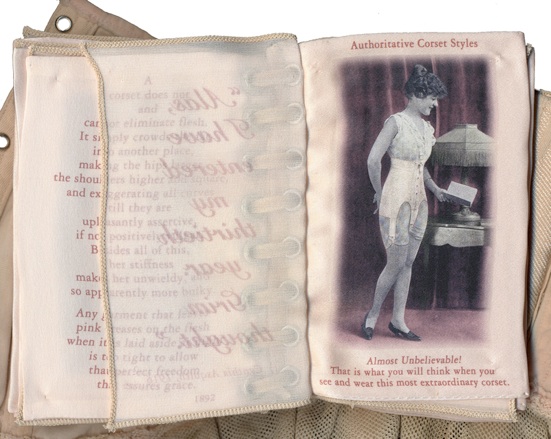 A
corset does not
and
cannot eliminate flesh.
It simply crowds
in another place,
making the
the shoulders higher
and exaggerating all
till they are
unpleasantly assertive,
if not positively
Besides all of this,
her stiffness
makes her unwieldy,
so apparently more bulky
Any garment that
pink creases on the flesh
when it is laid aside
is too tight to allow
that perfect freedom
that assures grace.
1892
"Alas,
I have
entered
my
thirtieth
year,"
thought
Authoritative Corset Styles
Almost Unbelievable!
That is what you will think when you
see and wear this most extraordinary corset.